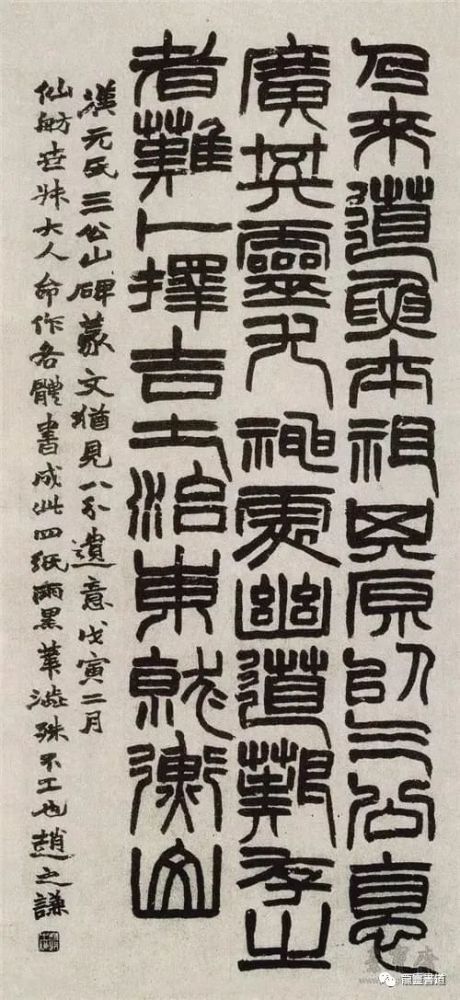 乃來道要本祖其原以三公悳
廣其靈尤神處幽道艱存之
者難卜擇吉土治東就衡山
漢元氏三公山碑篆文猶見八分遺意戊寅二月
仙舫世叔大人命作各體書成此四紙墨筆澁殊不工也趙之謙
書道